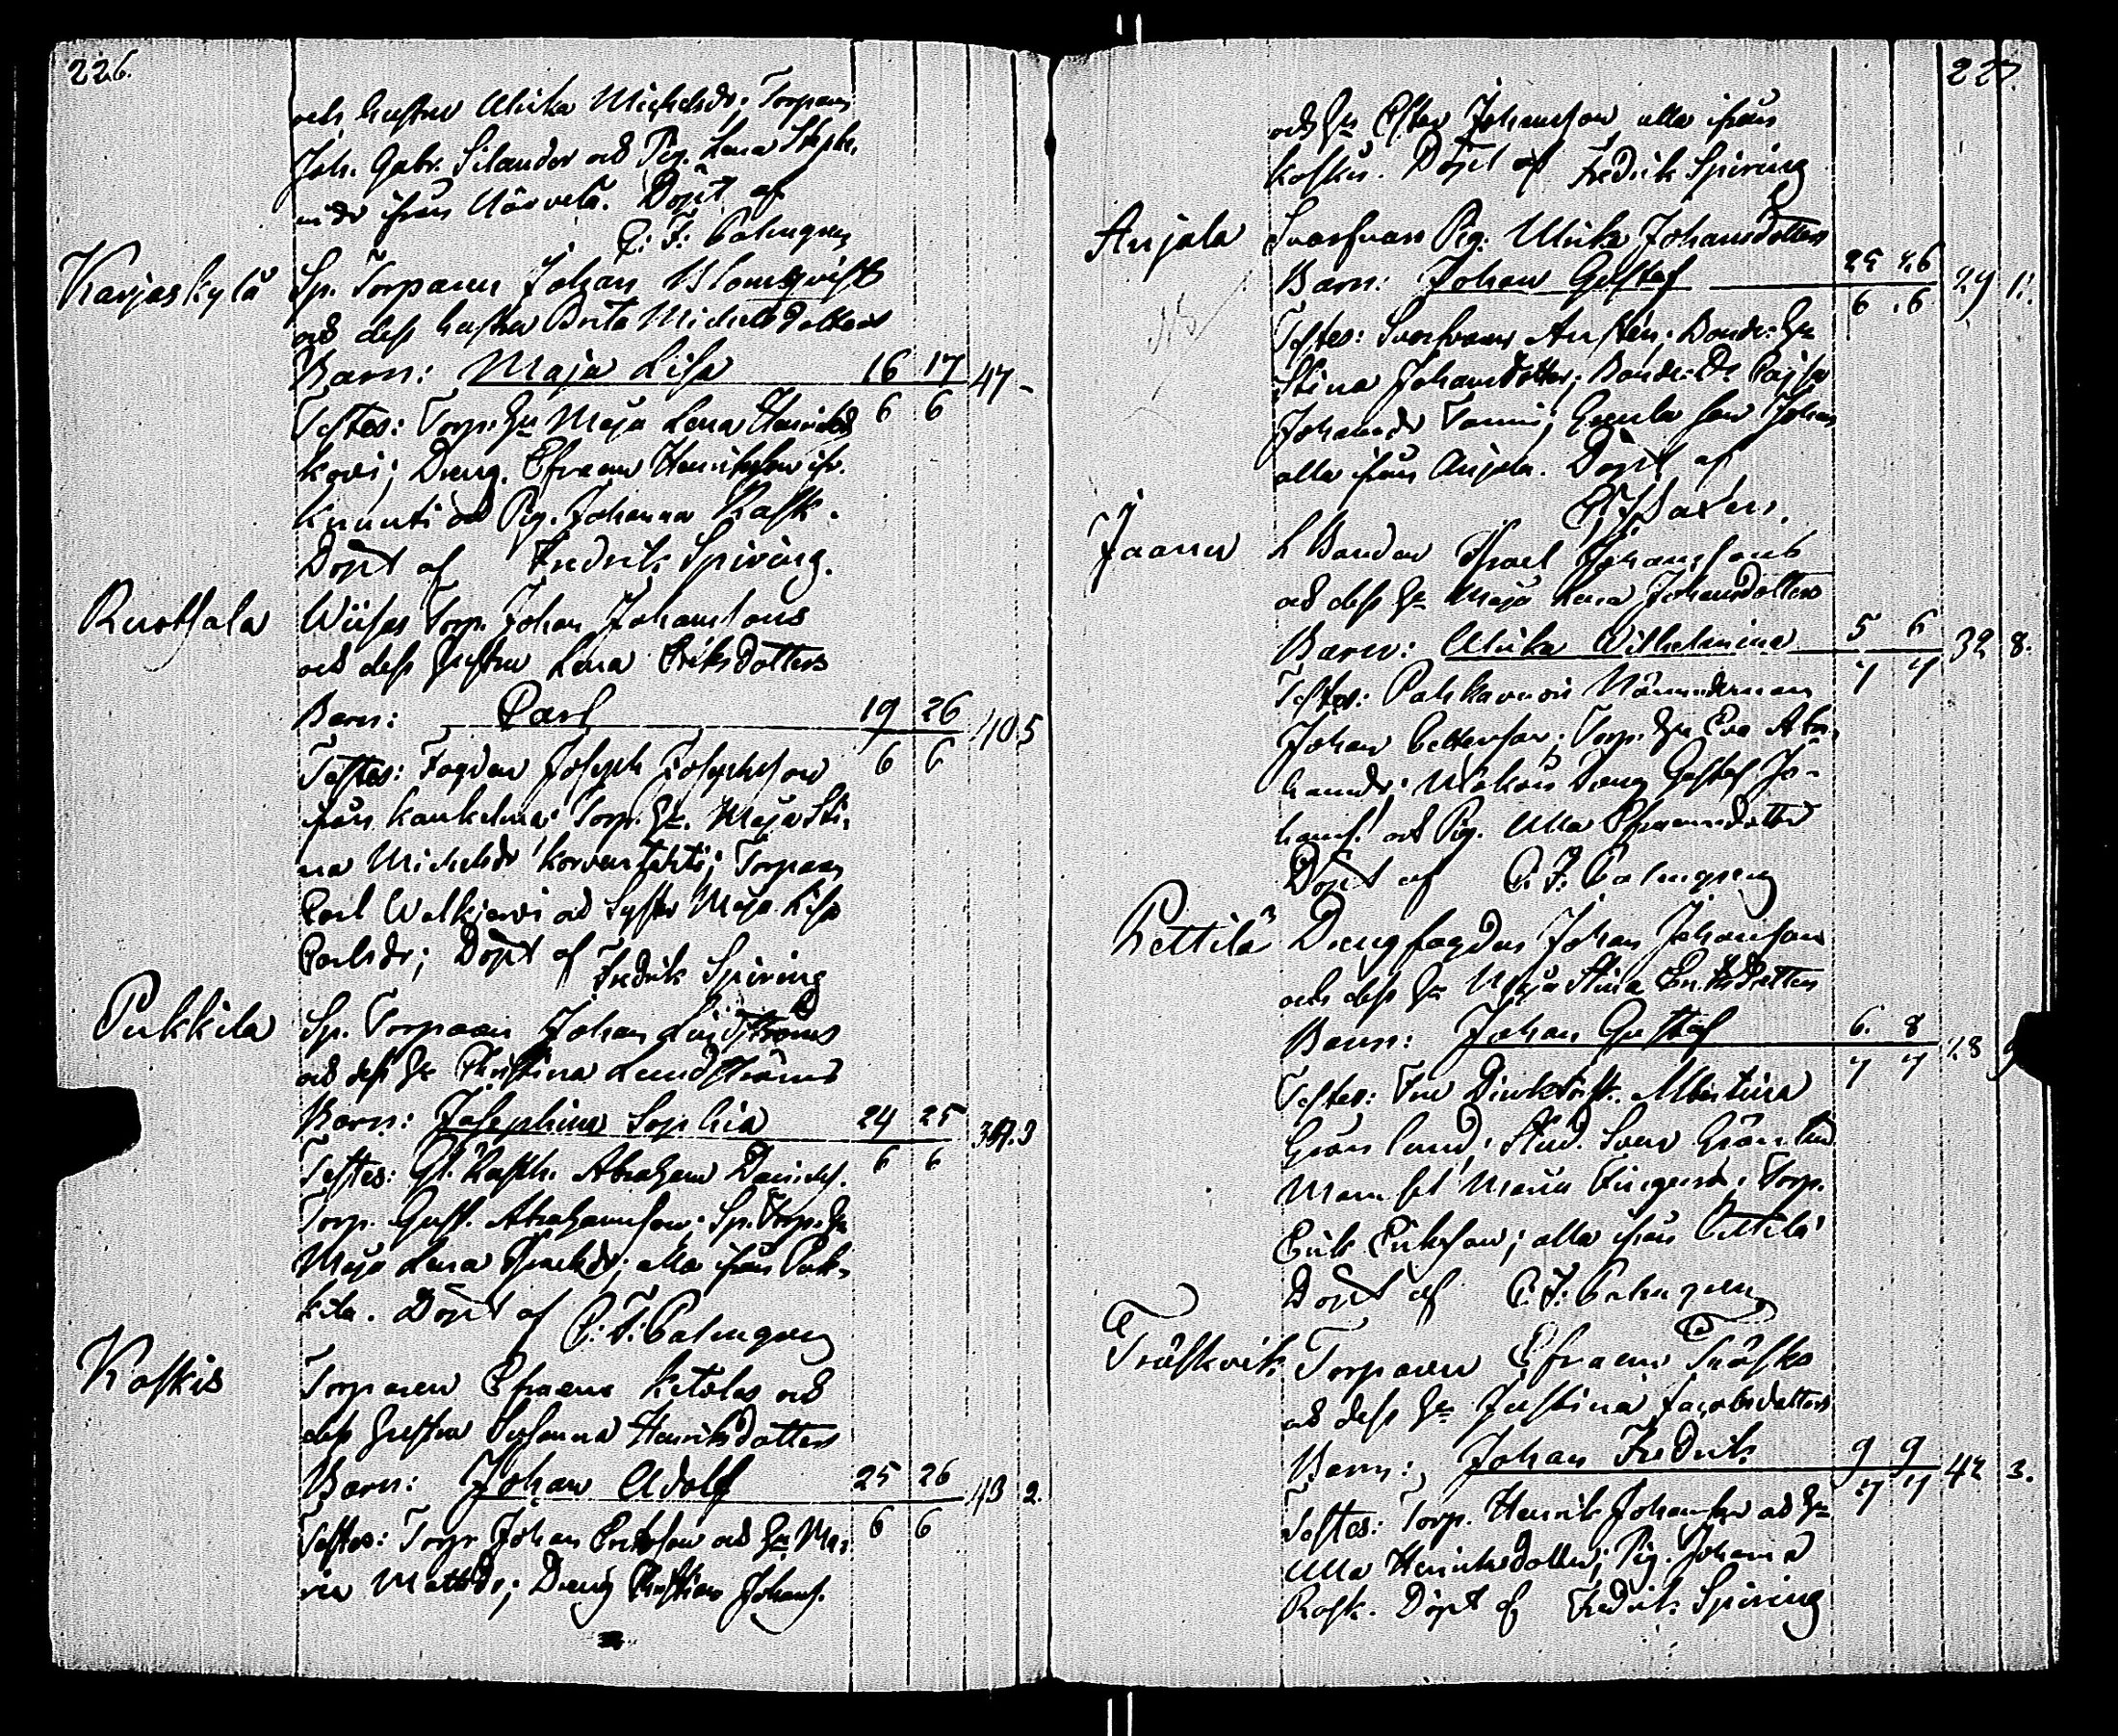 226.
och hustru Ulrika Michelsdr; Torparn
Joh. Gabr. Silander och Pig. Lena
ifrån Närvelä. Döpt af
C. F. Palmgren
Karjaskylä Sp. Torparen Johan Blomqvist
och dess hustru Brita Michelsdotters
Barn: Maja Lisa 16 17 47 -
Testes: Torp. Hu Maja Lena Henriksdr 6 6
Dreng. Efraem Henriksson ifr.
Knuuti och Pig. Johanna Rask.
Döpt af Fredrik Spiring.
Ruotsala Torp. Johan Johanssons
och dess hustru Lena Eriksdotters
Barn: Carl 19 26 40 5
Testes: Fogden Joseph Josephsson 6 6
ifrån Kankelma; Torp. Hu. Maja Sti-
na Michelsdr Korventahti; Torparn
Carl Walkjervi och Syster Maja Lisa
Carlsdr; Döpt af Fredrik Spiring
Pukkila Sp. Torparen Johan Lindströms
och dess Hu Christina Lundströms
Barn: Josephina Sophia 24 25 3
Testes: Abraham Daniels. 6 6
Torp. Gust. Abrahamsson; Sp. Torp. Hu
Maja Lena alla ifrån Puk-
kila. Döpt af C. F. Palmgren
Koskis Torparen Efraem Ketolas och
dess hustru Susanna Henriksdotters
Barn: Johan Adolf 25 26 43 2.
Testes: Torp. Johan Eriksson och Hu Ma- 6 6
ria Mattsdr; Dreng Christian Johans.
227.
och Hu Ester Johansson alla ifrån
Koskis. Döpt af Fredrik Spiring
Anjala Pig. Ulrika Johansdotters
Barn: Johan Gustaf 25 26 29 11.
Testes: Bonde: Hu 6 6
Stina Johansdotter; Bonde: Dr Cajsa
Johansdr Johan
alla ifrån Anjala. Döpt af
Jaanu L Bonden Israel Johanssons
och dess Hu Maja Lena Johansdotters
Barn: Ulrika Wilhelmina 5 6 32 8.
Testes: Nämndeman 7 7
Johan Torp. Hu Eva Abra-
hamsdr; Dreng Gustaf Jo-
hans. och Pig. Ulla Efraemsdotter
Döpt af C. F. Palmgren
Pettilä Drengfogden Johan Johansson
och dess Hu Maja Stina Eriksdotters
Barn: Johan Gustaf 6. 8 28 9
Testes: Albertina 7 7
Grönlund; Stud. Sven Grönlund
Mamsel Maria Torp.
Erik Eriksson; alla ifrån Pettilä
Döpt af C. F. Palmgren
Träskvik Torparen Efraem Träsks
och dess Hu Justina Jacobsdotters
Barn: Johan Fredrik 9 9 42 3.
Testes: Torp. Henrik Johansson och Hu 7 7
Ulla Henriksdotter; Pig. Johanna
Rask. Döpt af Fredrik Spiring